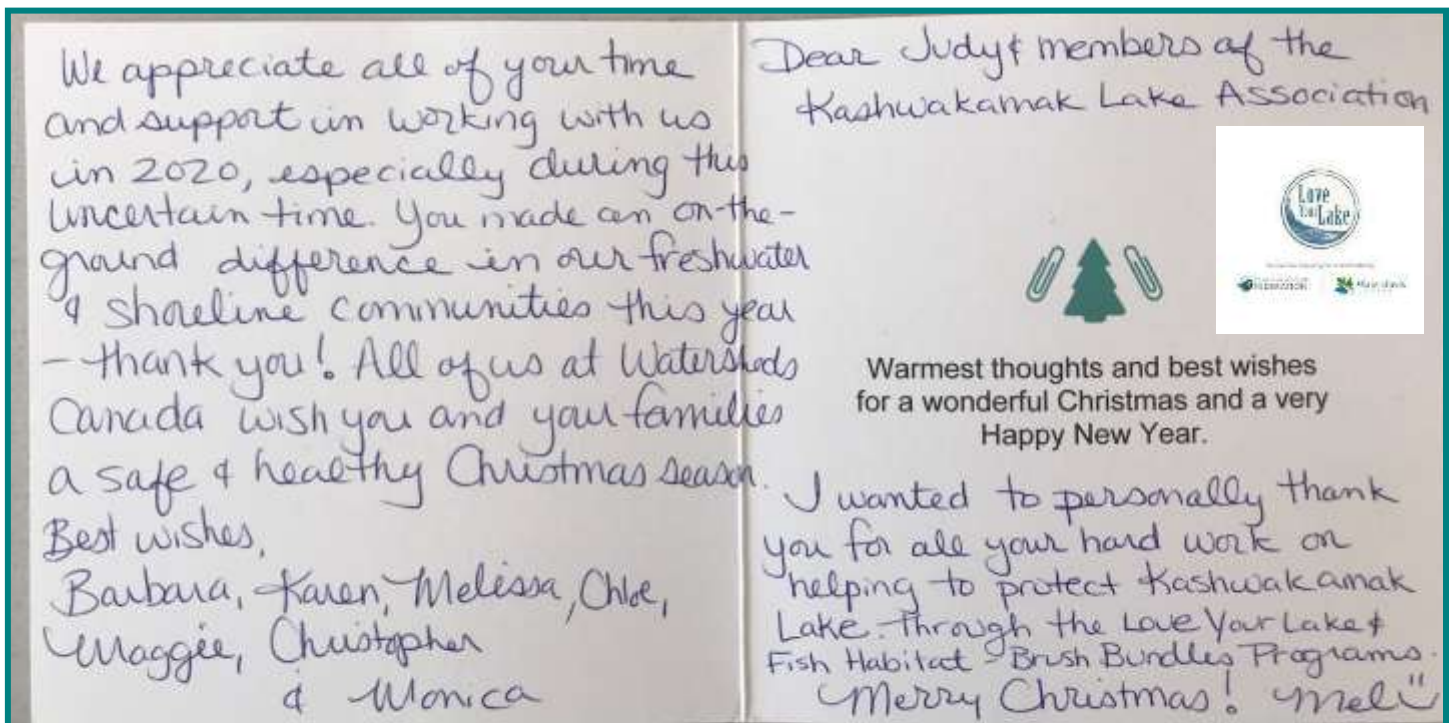 We appreciate all of your time
and support in working with us
in 2020, especially during this
uncertain time. You made an on-the-
ground difference in our freshwater
& shoreline communities this year
- thank you! All of us at Watersheds
Canada wish you and your families
a safe & healthy Christmas season.
Best wishes,
Barbara, Karen, Melissa, Chloe,
Maggie, Christopher
& Monica
Dear Judy & members of the
Kashwakamak Lake Association
Love
Your
Lake
FEDERATION
Watersheds
Warmest thoughts and best wishes
for a wonderful Christmas and a very
Happy New Year.
I wanted to personally thank
you for all your hard work on
helping to protect Kashwakamak
Lake through the Love Your Lake &
Fish Habitat - Brush Bundles Programs.
Merry Christmas! Mel